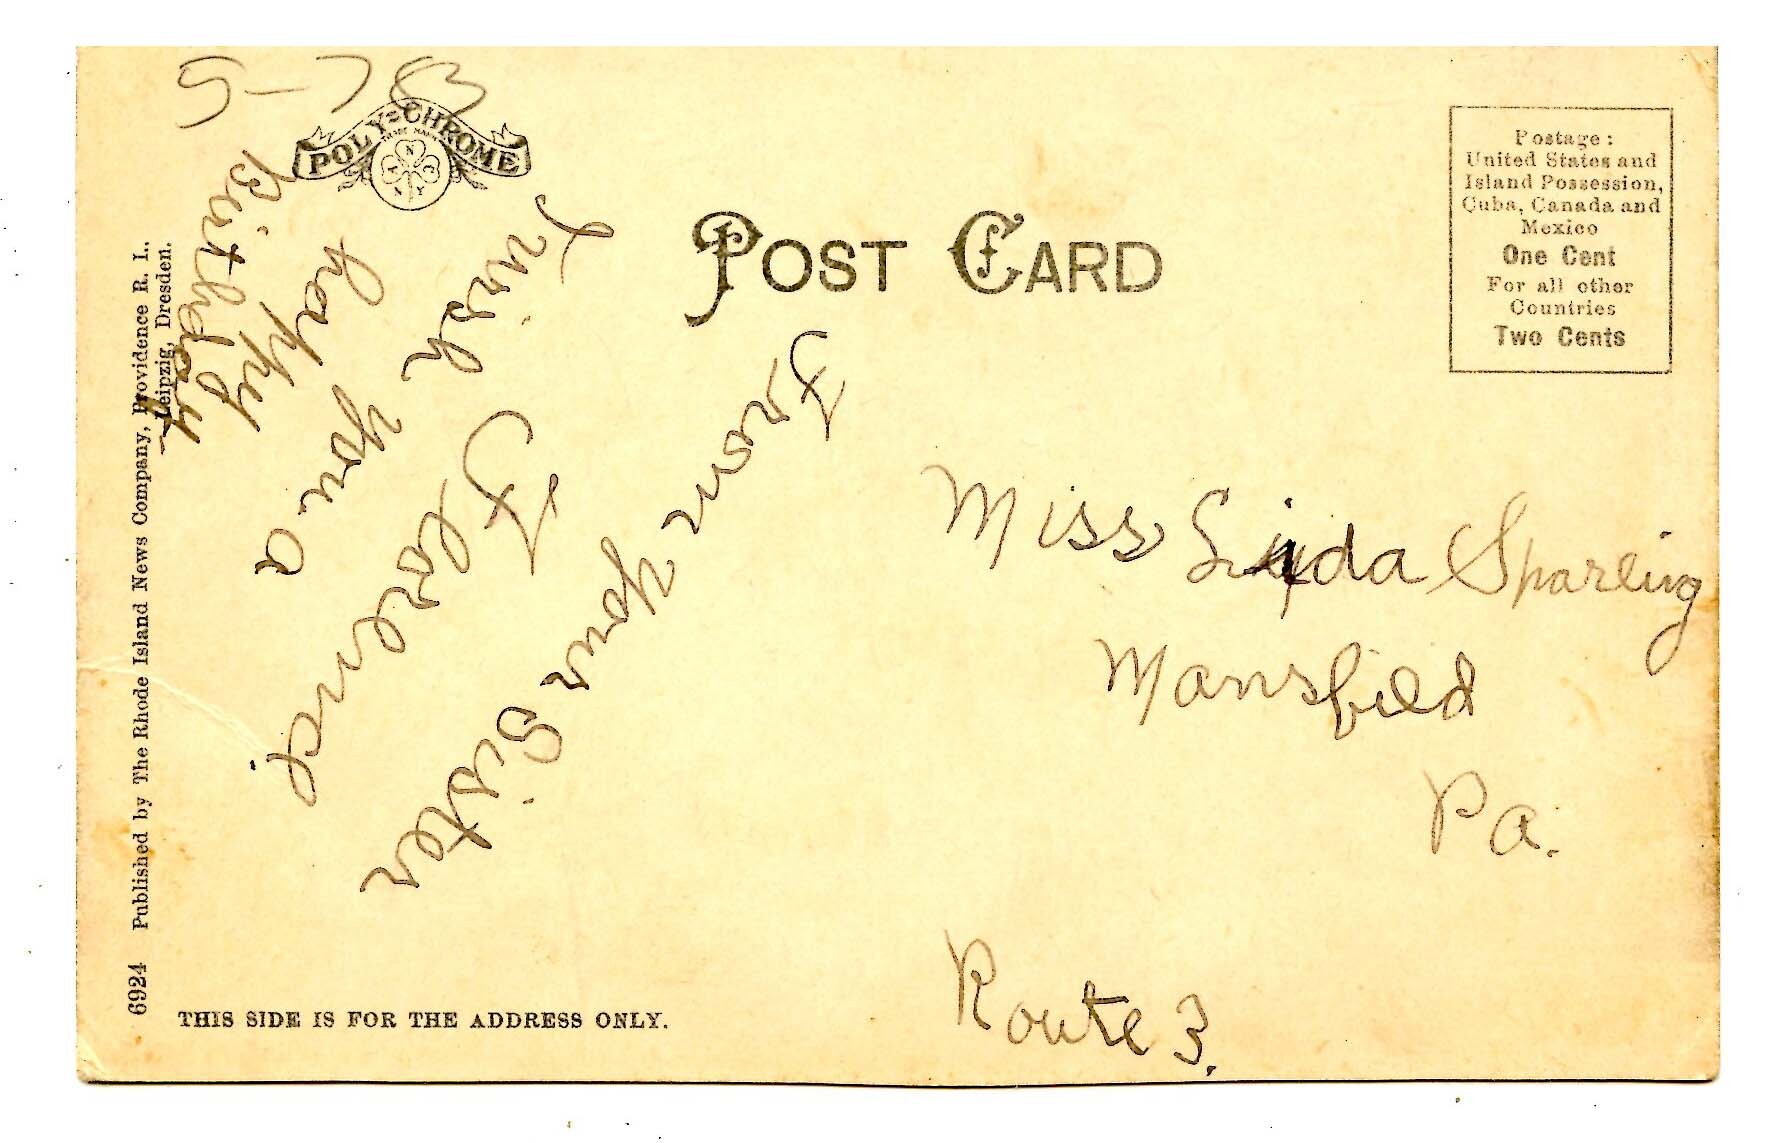 POLY=CHROME
TRADE MARK
POST CARD
Postage:
United States and
Island Possession,
Cuba, Canada and
Mexico
One Cent
For all other
Countries
Two Cents
I wish you a
happy
Birthday
From your Sister
Florence
Miss Lida Sparling
Mansfield
Pa.
Route 3.
6924 Published by The Rhode Island News Company, Providence R. I.,
Leipzig, Dresden.
THIS SIDE IS FOR THE ADDRESS ONLY.